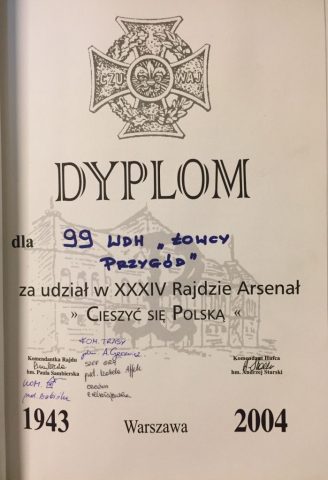 CZU WAJ
DYPLOM
dla 99 WDH „ŁOWCY
PRZYGÓD"
za udział w XXXIV Rajdzie Arsenał
» CIESZYĆ SIĘ POLSKĄ «
KOM. TRASY
Komendantka Rajdu
hm. Paula Sambierska
SZEF
KOM.
Komendant Hufca
hm. Andrzej Sturski
1943 Warszawa 2004